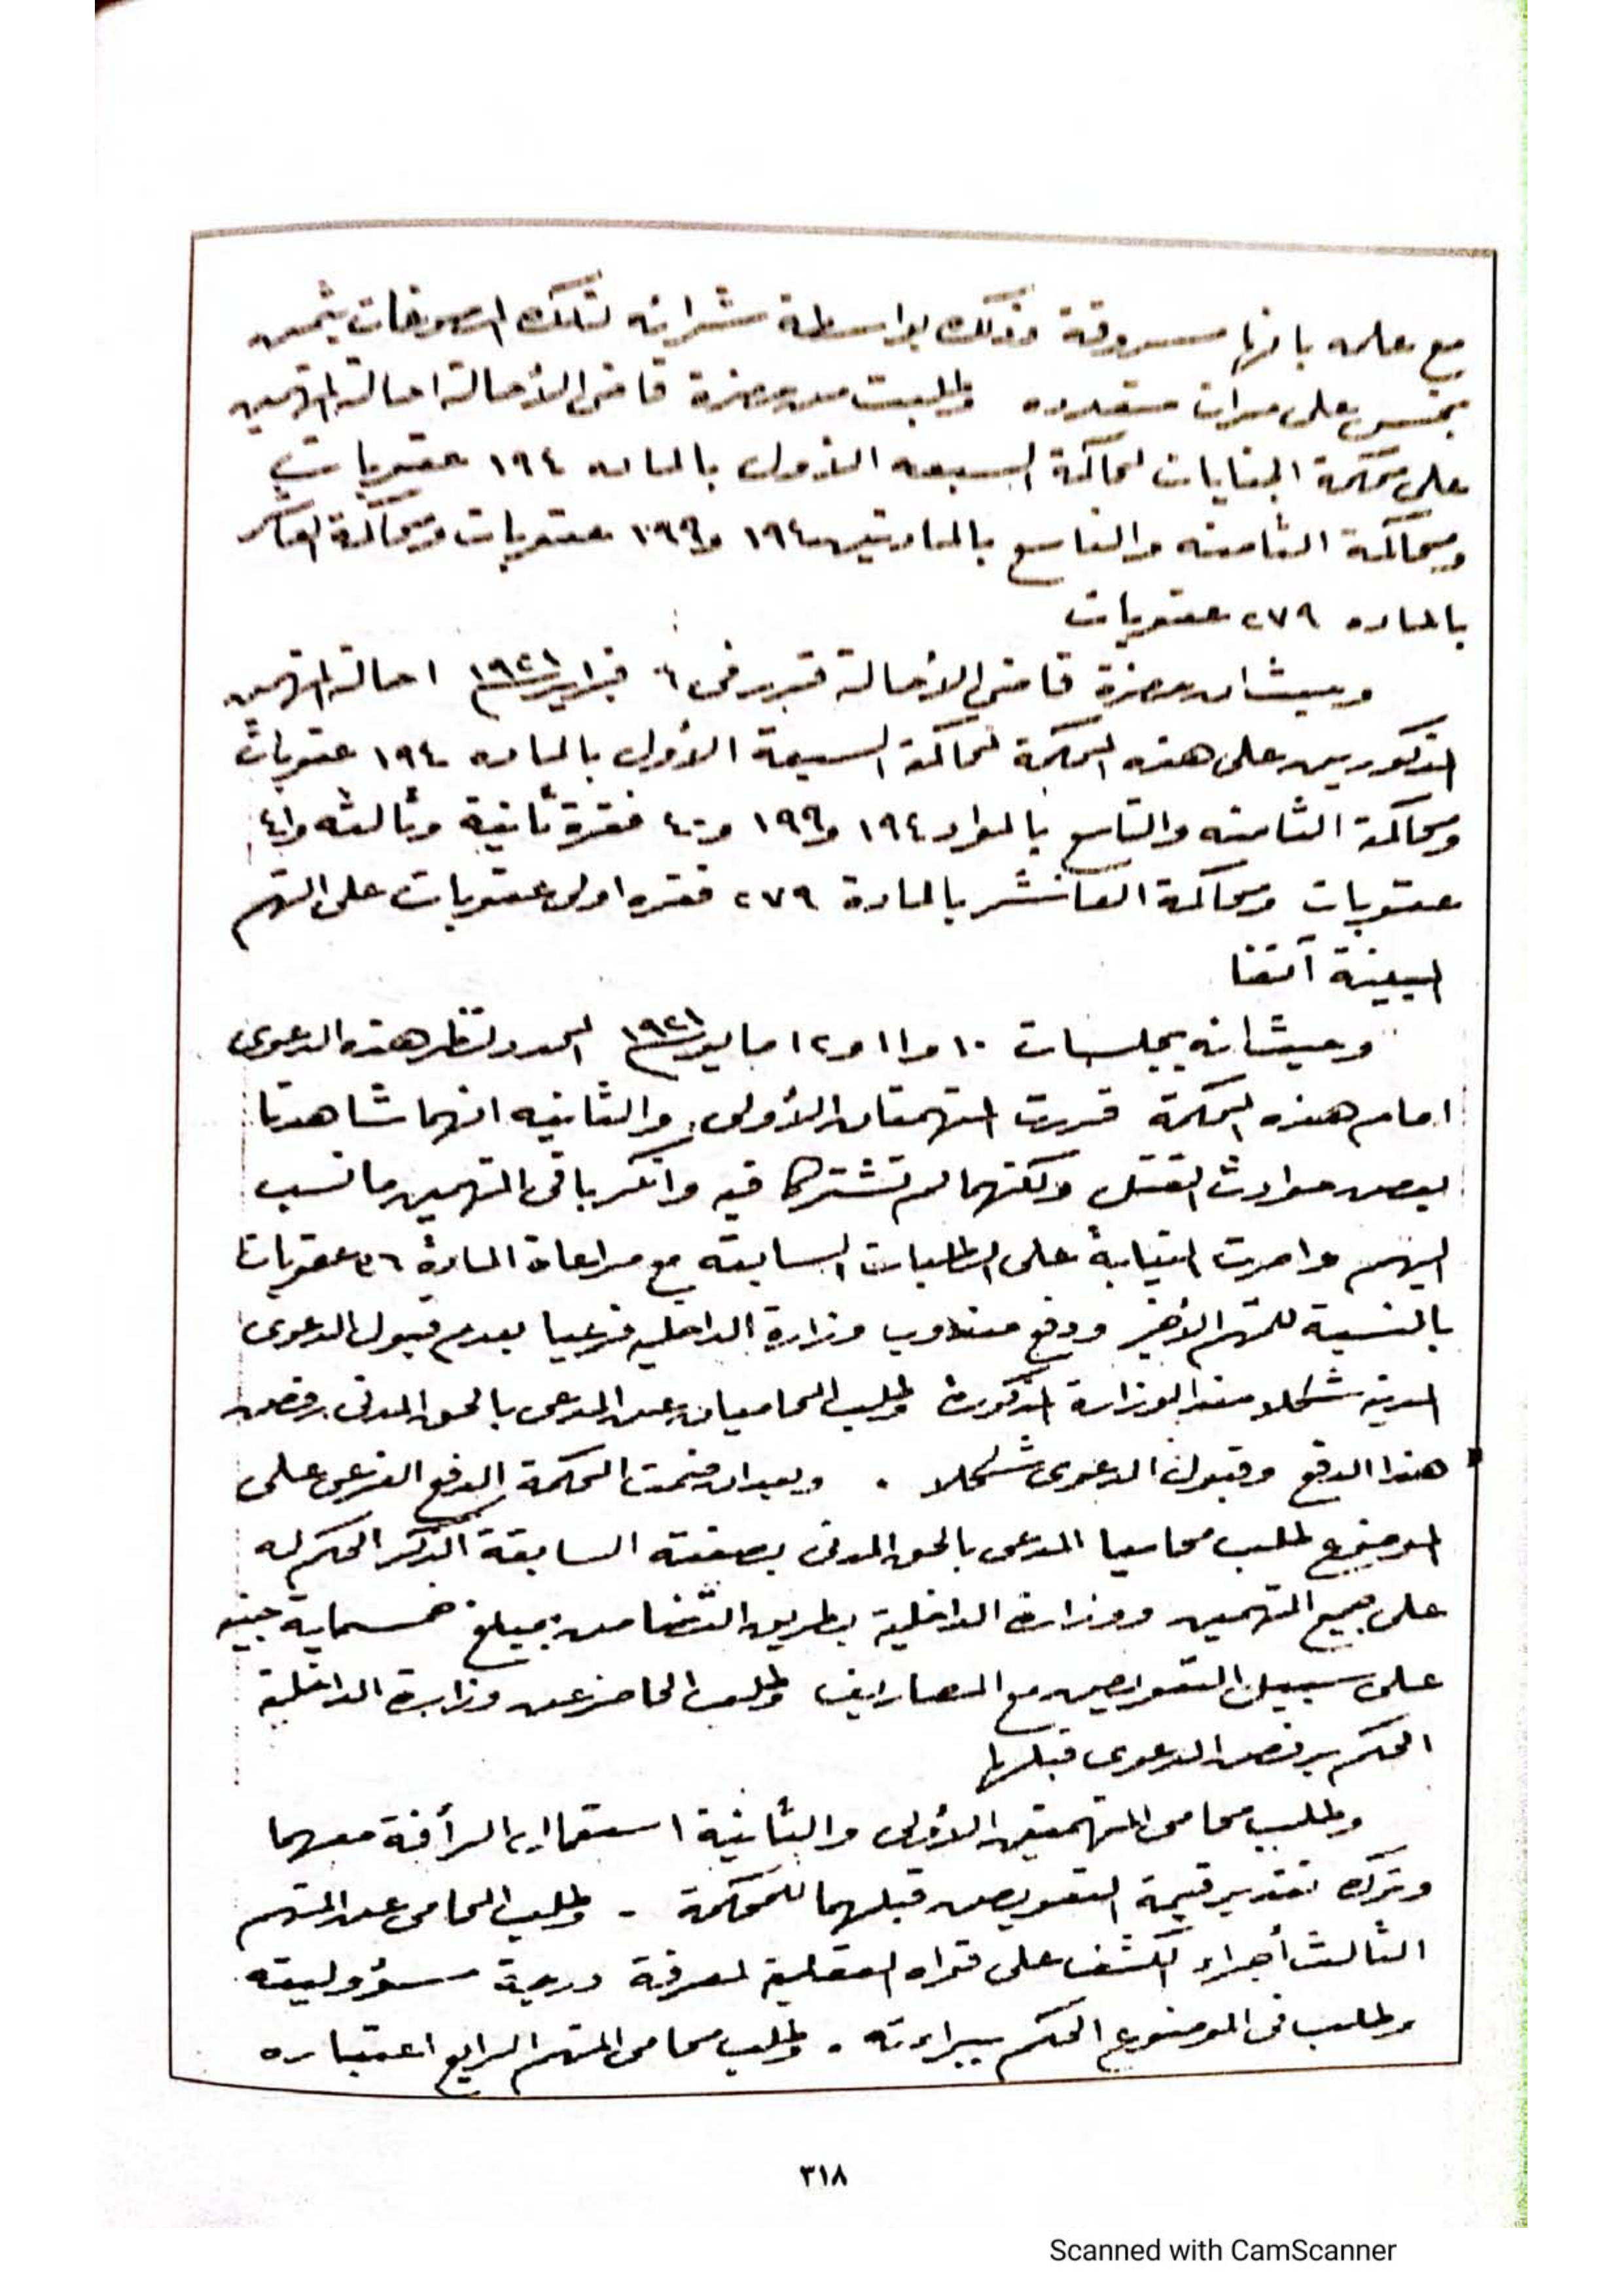 مع علمه بانها مسروقة وذلك بواسطة شرائه تلك المصوغات بثمن
بخس على مرات متعدده وطلبت من حضرة قاضى الأحالة احالة المتهمين
على محكمة الجنايات لمحاكمة السبعه الأول بالماده ١٩٤ عقوبات
ومحاكمة الثامنه والتاسع بالمادتين ١٩٤ و١٩٩ عقوبات ومحاكمة العاشر
بالماده ٢٧٩ عقوبات
وحيث ان حضرة قاضى الأحالة قرر فى فبراير سنة ١٩٢١ احالة المتهمين
المذكورين على هذه المحكمة لمحاكمة السبعة الأول بالماده ١٩٤ عقوبات
ومحاكمة الثامنه والتاسع بالمواد ١٩٤ و١٩٩ و٤٠ فقرة ثانية وثالثه و٤١
عقوبات ومحاكمة العاشر بالمادة ٢٧٩ فقره اولى عقوبات على التهم
المبينة آنفا
وحيث انه بجلسات ١٠ و١١ و١٢ مايو سنة ١٩٢١ المحدد لنظر هذه الدعوى
امام هذه المحكمة قررت المتهمتان الأولى والثانيه انهما شاهدتا
بعض حوادث القتل ولكنهما لم تشتركا فيه وانكر باقى المتهمين ما نسب
اليهم واصرت النيابة على الطلبات السابقه مع مراعاة المادة عقوبات
بالنسبة للمتهم الأخير ودفع مندوب وزارة الداخليه فرعيا بعدم قبول الدعوى
المدنيه شكلا ضد الوزارة المذكورة وطلب المحاميان عن المدعى بالحق المدنى رفض
هذا الدفع وقبول الدعوى شكلا . وبعد ان ضمت المحكمة الدفع الفرعى على
الموضوع طلب محاميا المدعى بالحق المدنى بصفته السابقة الذكر الحكم له
على جميع المتهمين ووزارة الداخلية بطريق التضامن بمبلغ خمسماية جنيه
على سبيل التعويض مع المصاريف وطلب الحاضر عن وزارة الداخلية
الحكم برفض الدعوى قبلها
وطلب محامى المتهمتين الأولى والثانية استعمال الرأفة معهما
وترك تقدير قيمة التعويض قبلهما للمحكمة - وطلب المحامى عن المتهم
الثالث أجراء الكشف على قواه العقلية لمعرفة درجة مسؤوليته
وطلب فى الموضوع الحكم ببراءته . وطلب محامى المتهم الرابع اعتباره
٣١٨
Scanned with CamScanner